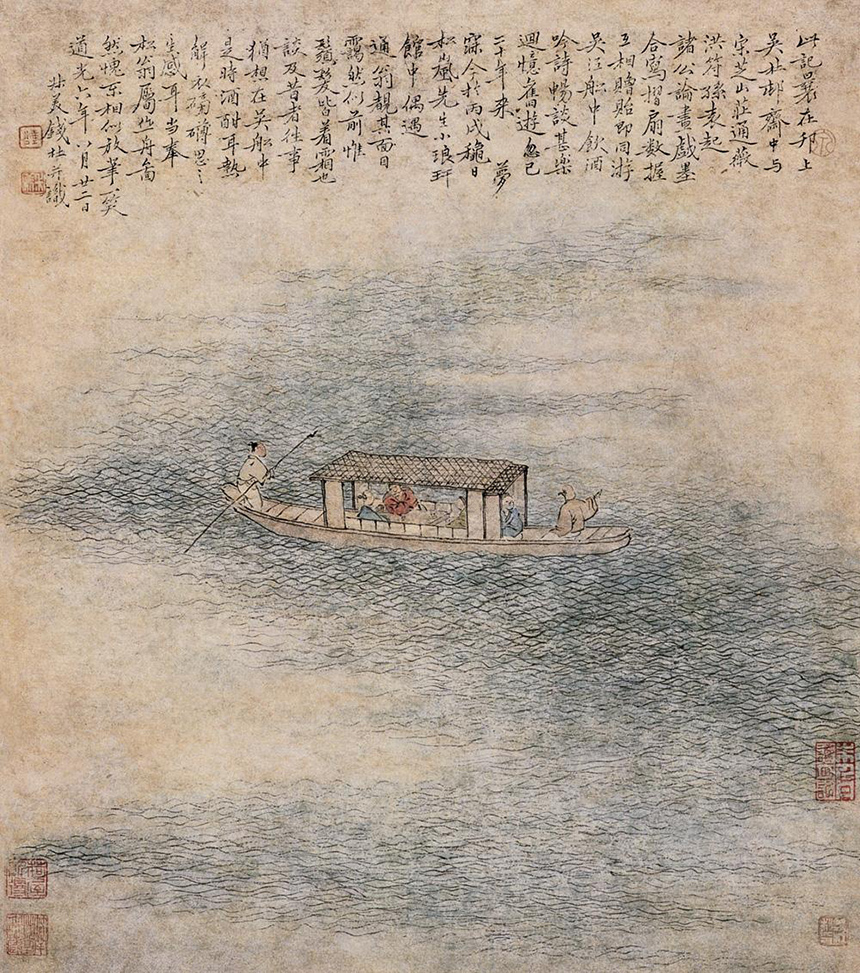 此記曩在邗上
吳杜邨齋中与
宗芝山莊通薇
洪符孫袁起
諸公論畫戲墨
合寫摺扇數握
互相贈貽即同游
吳江船中飲酒
吟詩暢談甚樂
迴憶舊游忽已
二十年來夢
寐今於丙戌穐日
松嵐先生小琅玕
館中偶遇
通翁覩其面目
靄然似前惟
鬚髮皆着霜也
談及昔者往事
猶相在吳船中
是時酒酣耳熱
解衣磅礴思之
生感耳當奉
松翁屬作舟畵
然愧不相似放筆一笑
道光六年八月廿二日
叔美錢杜并識